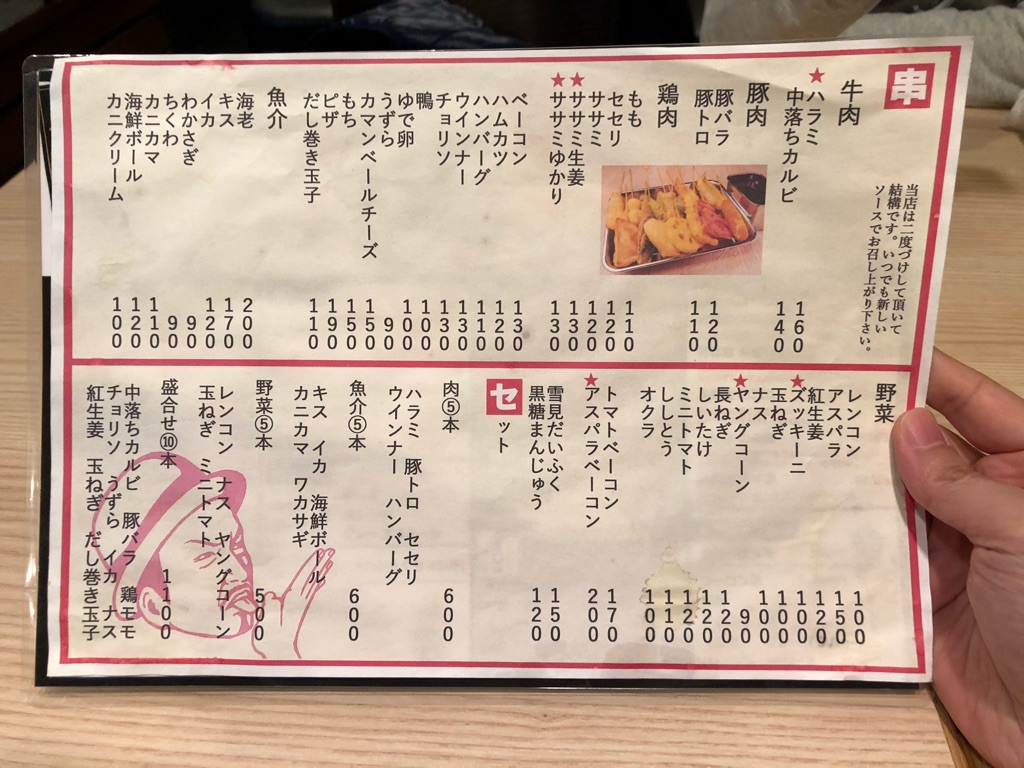 串
当店は二度づけして頂いて
結構です。いつでも新しい
ソースでお召し上がり下さい。
牛肉
★ハラミ 160
中落ちカルビ 140
豚肉
豚バラ 120
豚トロ 110
鶏肉
もも 110
セセリ 120
ササミ 120
★ササミ生姜 130
★ササミゆかり 130
ベーコン 130
ハムカツ 120
ハンバーグ 110
ウインナー 130
チョリソ 130
鴨 100
ゆで卵 100
うずら 90
カマンベールチーズ 150
もち 150
ピザ 110
だし巻き玉子 110
魚介
海老 200
キス 170
イカ 120
わかさぎ 90
ちくわ 90
カニカマ 110
海鮮ボール 120
カニクリーム 100
野菜
レンコン 100
アスパラ 150
紅生姜 120
★ズッキーニ 100
玉ねぎ 100
ナス 100
★ヤングコーン 90
長ねぎ 120
しいたけ 120
ミニトマト 120
ししとう 110
オクラ 100
トマトベーコン 170
★アスパラベーコン 200
雪見だいふく 150
黒糖まんじゅう 120
セット
肉⑤本 600
ハラミ 豚トロ セセリ
ウインナー ハンバーグ
魚介⑤本 600
キス イカ 海鮮ボール
カニカマ ワカサギ
野菜⑤本 500
レンコン ナス ヤングコーン
玉ねぎ ミニトマト
盛合せ⑩本 1100
中落ちカルビ 豚バラ 鶏モモ
チョリソ うずら イカ ナス
紅生姜 玉ねぎ だし巻き玉子